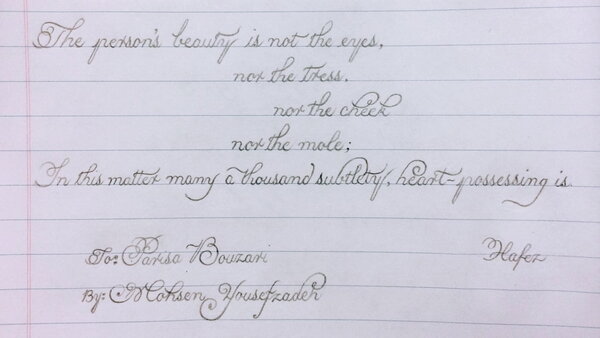 The person's beauty is not the eyes,
nor the tress.
nor the cheek
nor the mole;
In this matter many a thousand subtlety, heart-possessing is.
To: Parisa Bouzari
Hafez
By: Mohsen Yousefzadeh